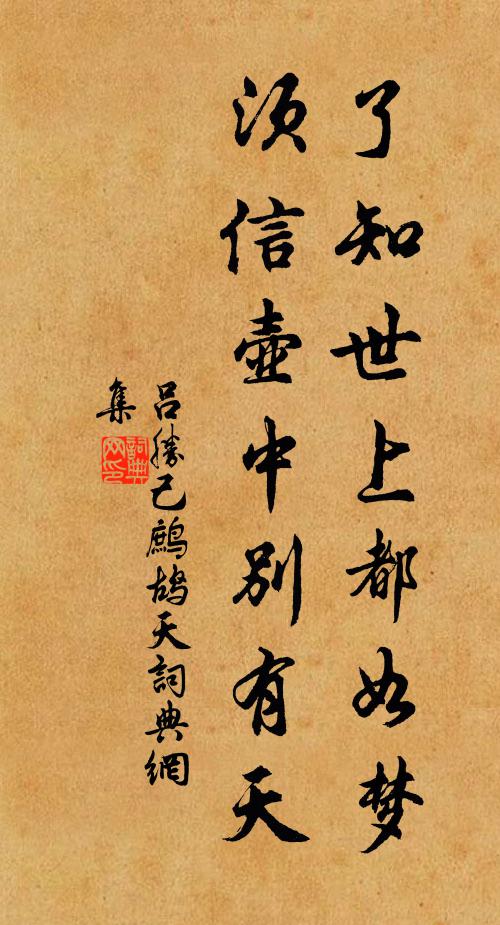 了知世上都如梦
须信壶中别有天
吕胜己鹧鸪天词典网
集
词典网印